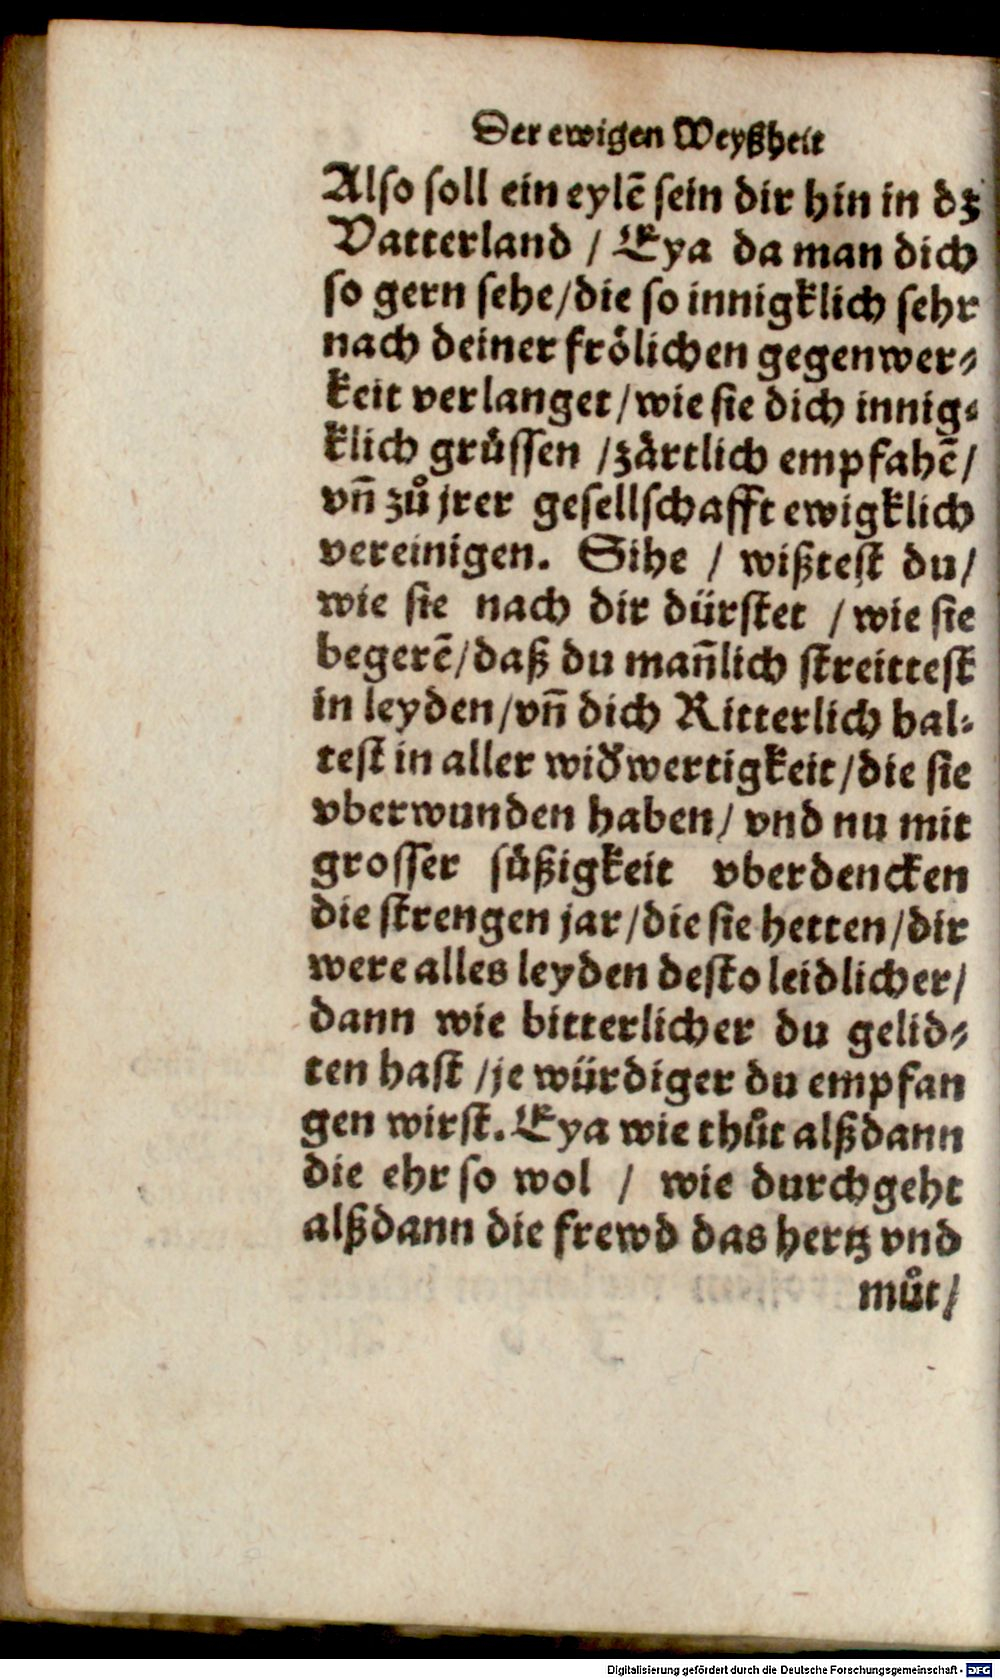 Der ewigen Weyßheit
Also soll ein eylẽ sein dir hin in dꝫ
Vatterland / Eya da man dich
so gern sehe/die so innigklich sehr
nach deiner froͤlichen gegenwer⸗
keit verlanget/wie sie dich innig⸗
klich gruͤssen /zaͤrtlich empfahẽ/
vñ zuͦ jrer gesellschafft ewigklich
vereinigen. Sihe / wißtest du/
wie sie nach dir dürstet / wie sie
begerẽ/daß du mañlich streittest
in leyden/vñ dich Ritterlich hal⸗
test in aller wid̕wertigkeit/die sie
vberwunden haben/ vnd nu mit
grosser suͤßigkeit vberdencken
die strengen jar/die sie hetten/dir
were alles leyden desto leidlicher/
dann wie bitterlicher du gelid⸗
ten hast /je würdiger du empfan
gen wirst. Eya wie thuͦt alßdann
die ehr so wol / wie durchgeht
alßdann die frewd das hertz vnd
muͦt/
Digitalisierung gefördert durch die Deutsche Forschungsgemeinschaft - DFG